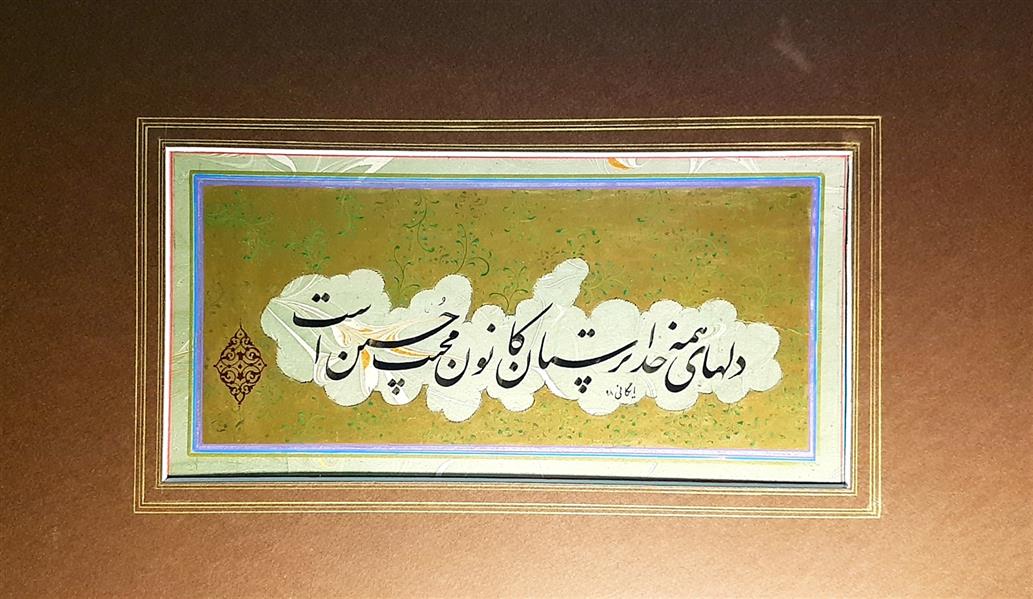 دلهای همه خداپرستان کانون محبت حسین است
ایکانی ۹۸